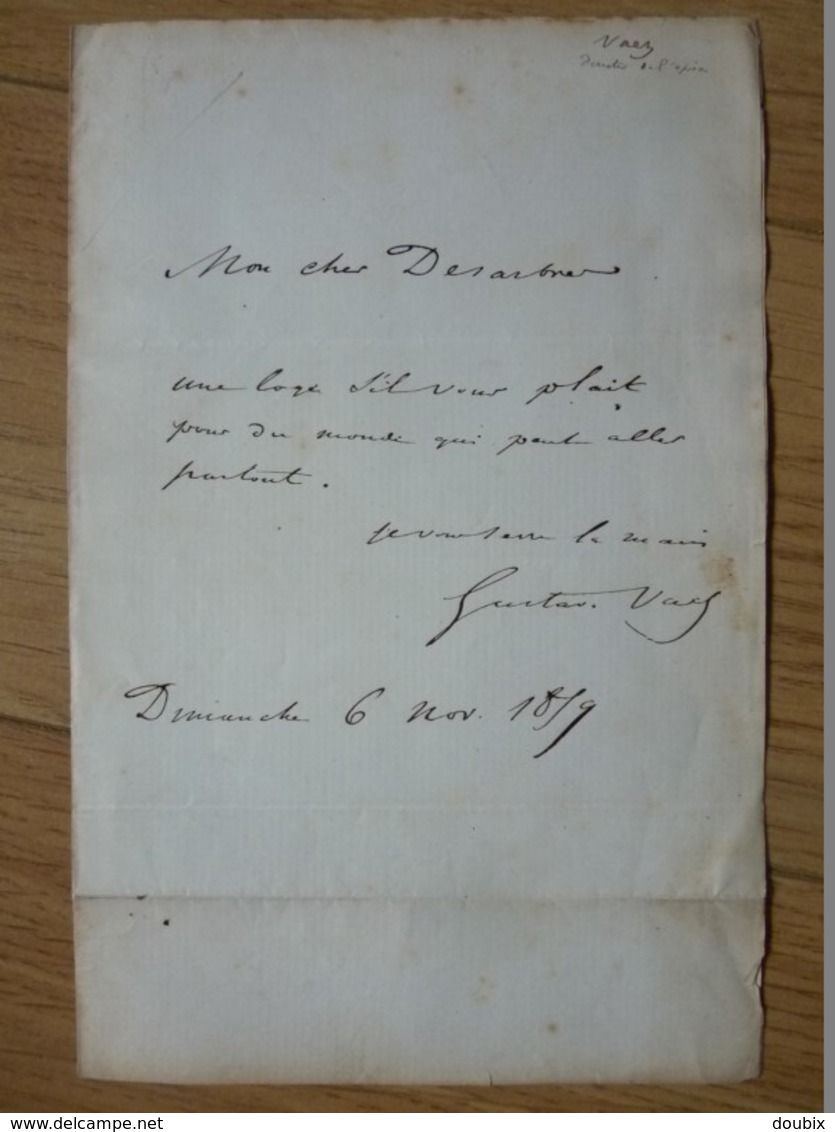 Vaez
directeur de l'opéra
Mon cher Desarbres
une loge s'il vous plait
pour du monde qui peut aller
partout.
je vous serre la main
Gustave Vaez
Dimanche 6 nov. 1859
www.delcampe.net
doubix